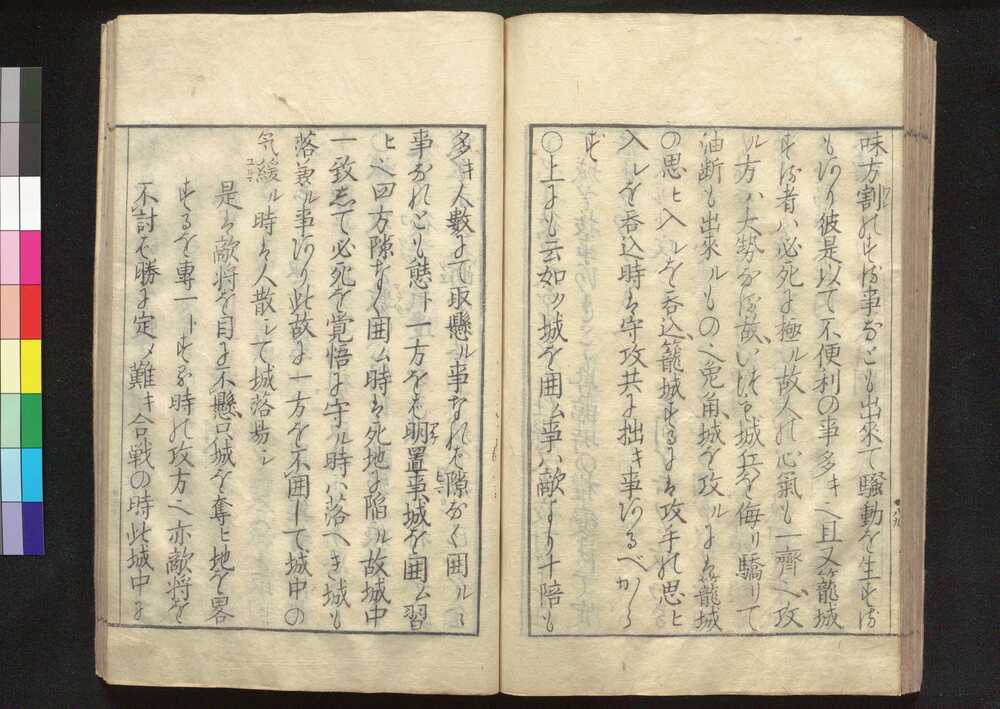 味方割れする事なども出來て騒動を生ずる
もあり彼是以て不便利の事多キ也且又籠城
する者ハ必死に極ル故人の心氣も一齊也攻
ル方ハ大勢なる故いつも城兵を侮り驕りて
油断も出來ルもの也兎角城を攻ルには籠城
の思ヒ入ルを呑込籠城するには攻手の思ヒ
入レを呑込時は守攻共に拙キ事あるべから
ず
○上にも云如ク城を囲ム事ハ敵より十陪も
多キ人數にて取懸ル事なれば隙なく囲ル
事なれとも態ト一方をば明置事城を囲ム習
ヒ也四方隙なく囲ム時は死地に陥ル故城中
一致して必死を覚悟に守ル時ハ落へき城も
落兼ル事あり此故に一方を不囲して城中の
気緩ル時は人散して城落易シ
是は敵将を目に不懸只城を奪ヒ地を畧
するを專一トする時の攻方也亦敵将を
不討ば勝に定メ難キ合戦の時此城中に